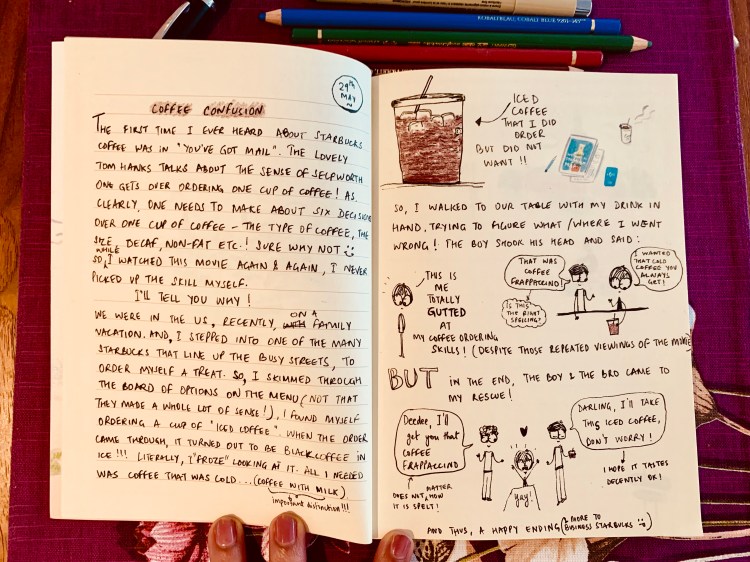 KOBALTBLAU, COBALT BLUE 9201-143
29TH
MAY
COFFEE CONFUSION
THE FIRST TIME I EVER HEARD ABOUT STARBUCKS
COFFEE WAS IN "YOU'VE GOT MAIL". THE LOVELY
TOM HANKS TALKS ABOUT THE SENSE OF SELFWORTH
ONE GETS OVER ORDERING ONE CUP OF COFFEE! AS.
CLEARLY, ONE NEEDS TO MAKE ABOUT SIX DECISIONS
OVER ONE CUP OF COFFEE - THE TYPE OF COFFEE, THE
SIZE DECAF, NON-FAT ETC.! SURE WHY NOT
SO, WHILE I WATCHED THIS MOVIE AGAIN & AGAIN, I NEVER
PICKED UP THE SKILL MYSELF.
I'LL TELL YOU WHY!
WE WERE IN THE US, RECENTLY, ON A FAMILY
VACATION. AND, I STEPPED INTO ONE OF THE MANY
STARBUCKS THAT LINE UP THE BUSY STREETS, TO
ORDER MYSELF A TREAT. SO, I SKIMMED THROUGH
THE BOARD OF OPTIONS ON THE MENU (NOT THAT
THEY MADE A WHOLE LOT OF SENSE!), I FOUND MYSELF
ORDERING A CUP OF "ICED COFFEE". WHEN THE ORDER
CAME THROUGH, IT TURNED OUT TO BE BLACK COFFEE IN
ICE!!! LITERALLY, I "FROZE" LOOKING AT IT. ALL I NEEDED
WAS COFFEE THAT WAS COLD... (COFFEE WITH MILK)
important distinction!!!
ICED
COFFEE
THAT I DID
ORDER
BUT DID NOT
WANT!!
SO, I WALKED TO OUR TABLE WITH MY DRINK IN
HAND. TRYING TO FIGURE WHAT/WHERE I WENT
WRONG! THE BOY SHOOK HIS HEAD AND SAID:
THIS IS
ME
TOTALLY
GUTTED
AT
MY COFFEE ORDERING
SKILLS! (DESPITE THOSE REPEATED VIEWINGS OF THE MOVIE)
THAT WAS
COFFEE
FRAPPACCINO
IS THIS
THE RIGHT
SPELLING?
I WANTED
THAT COLD
COFFEE YOU
ALWAYS
GET!
BUT IN THE END, THE BOY & THE BRO CAME TO
MY RESCUE!
Deedee, I'll
get you that
COFFEE
FRAPPACCINO
MATTER
DOES NOT, HOW
IT IS SPELT!
Yay!
DARLING, I'LL TAKE
THIS ICED COFFEE,
DON'T WORRY!
I HOPE IT TASTES
DECENTLY OK!
AND THUS, A HAPPY ENDING (& MORE TO
BUSINESS STARBUCKS)